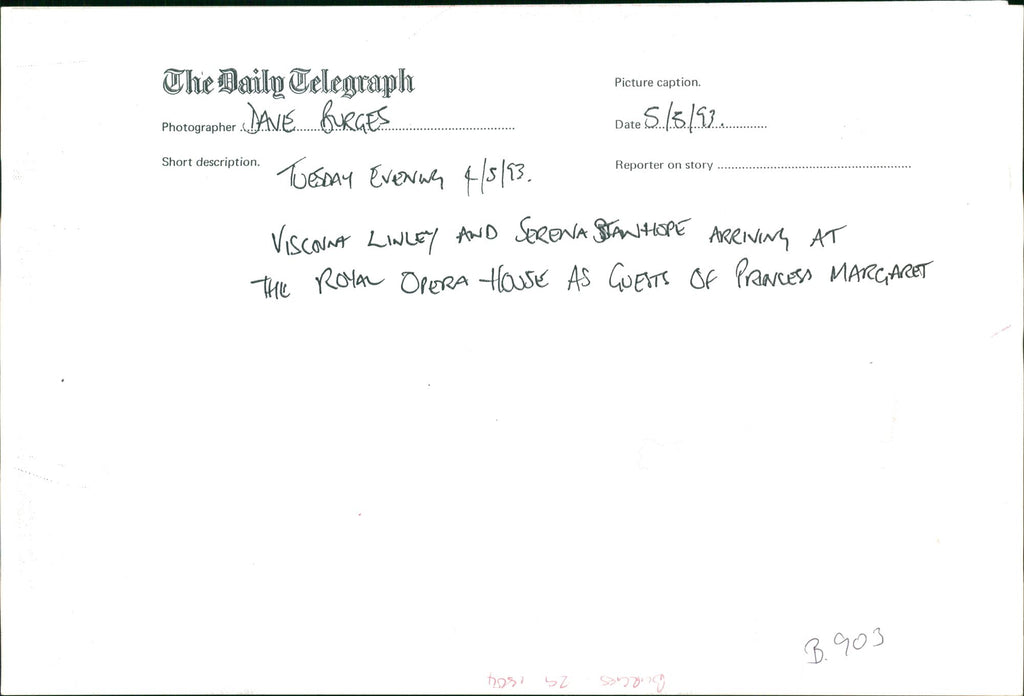 The Daily Telegraph
Picture caption.
Photographer DAVE BURGES
Date 5/5/93.
Short description.
Reporter on story
TUESDAY EVENING 4/5/93.
VISCOUNT LINLEY AND SERENA STANHOPE ARRIVING AT
THE ROYAL OPERA HOUSE AS GUESTS OF PRINCESS MARGARET
B.903